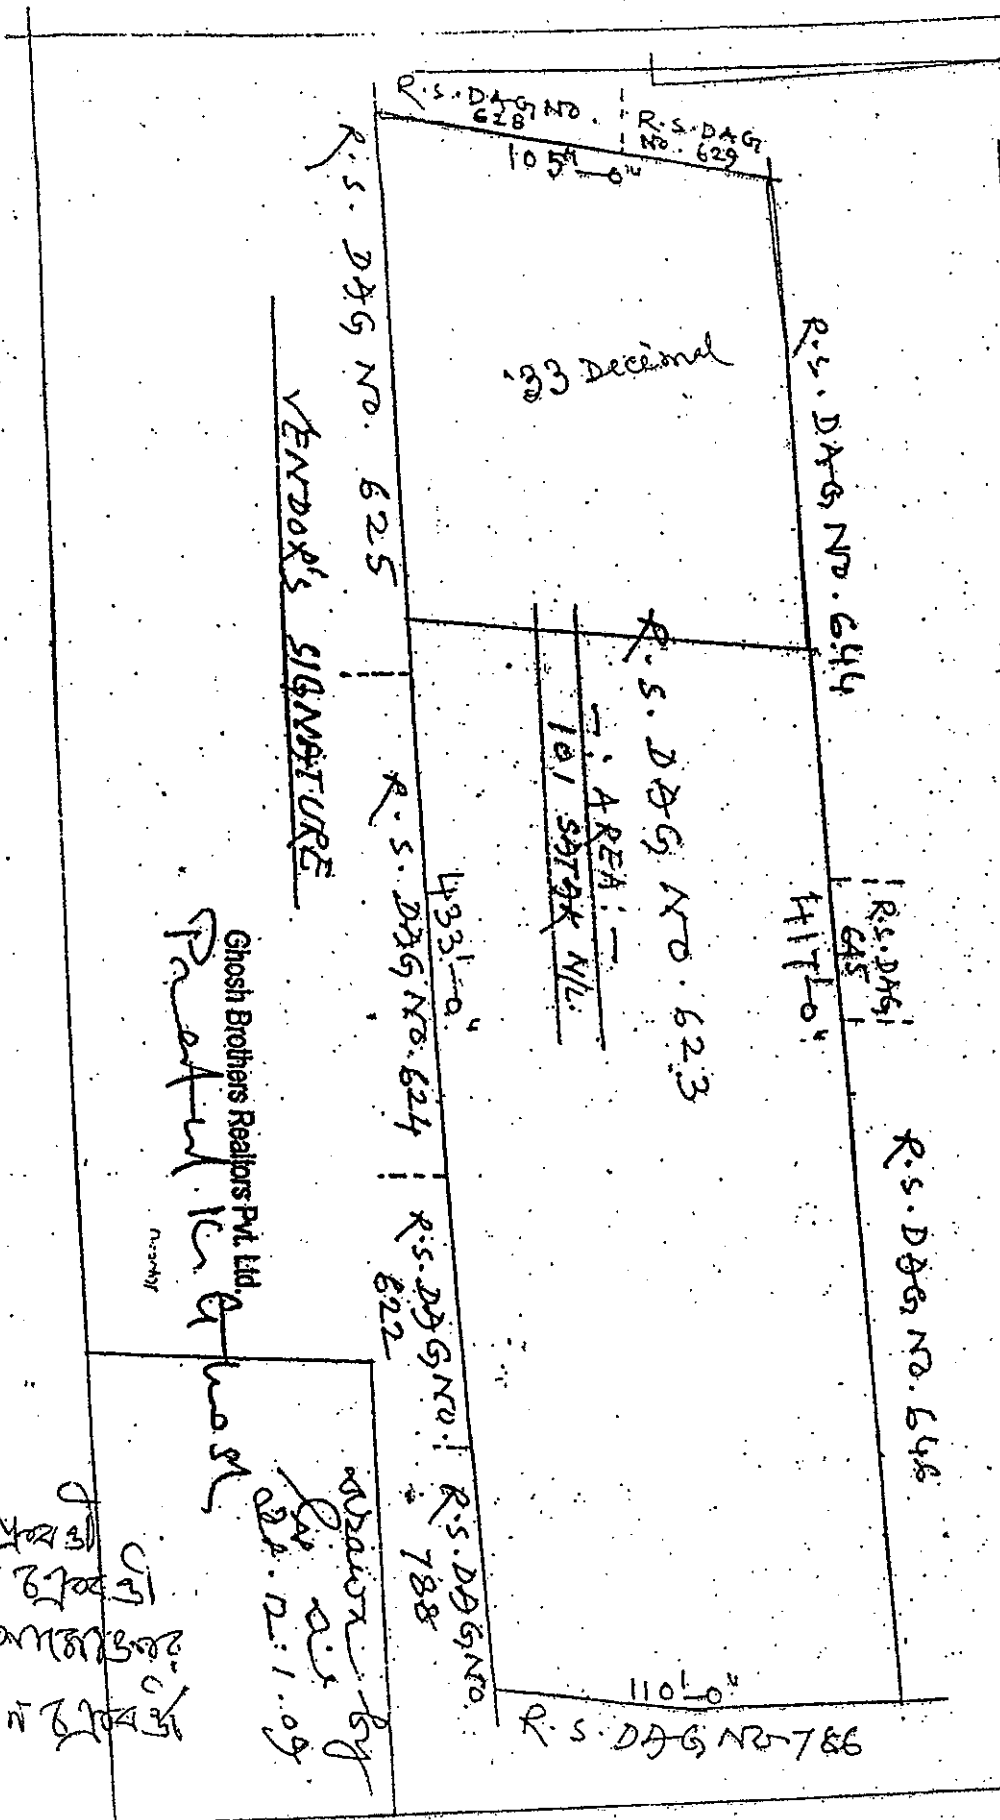 R.S. DAG NO.
628
R.S. DAG
NO. 629
105"—0"
R.S. DAG NO. 625
.33 Decimal
R.S. DAG NO. 644
VENDOR'S SIGNATURE
R.S. DAG NO. 623
-: AREA :-
101 SATAK N/L.
R.S. DAG
645
417'—0"
433'—0"
R.S. DAG NO. 624
R.S. DAG NO. 646
Ghosh Brothers Realtors Pvt. Ltd.
R.S. DAG NO.
622
R.S. DAG NO.
788
Drawn by
12.1.09
110'—0"
R.S. DAG NO-786
চক্রবর্ত্তী